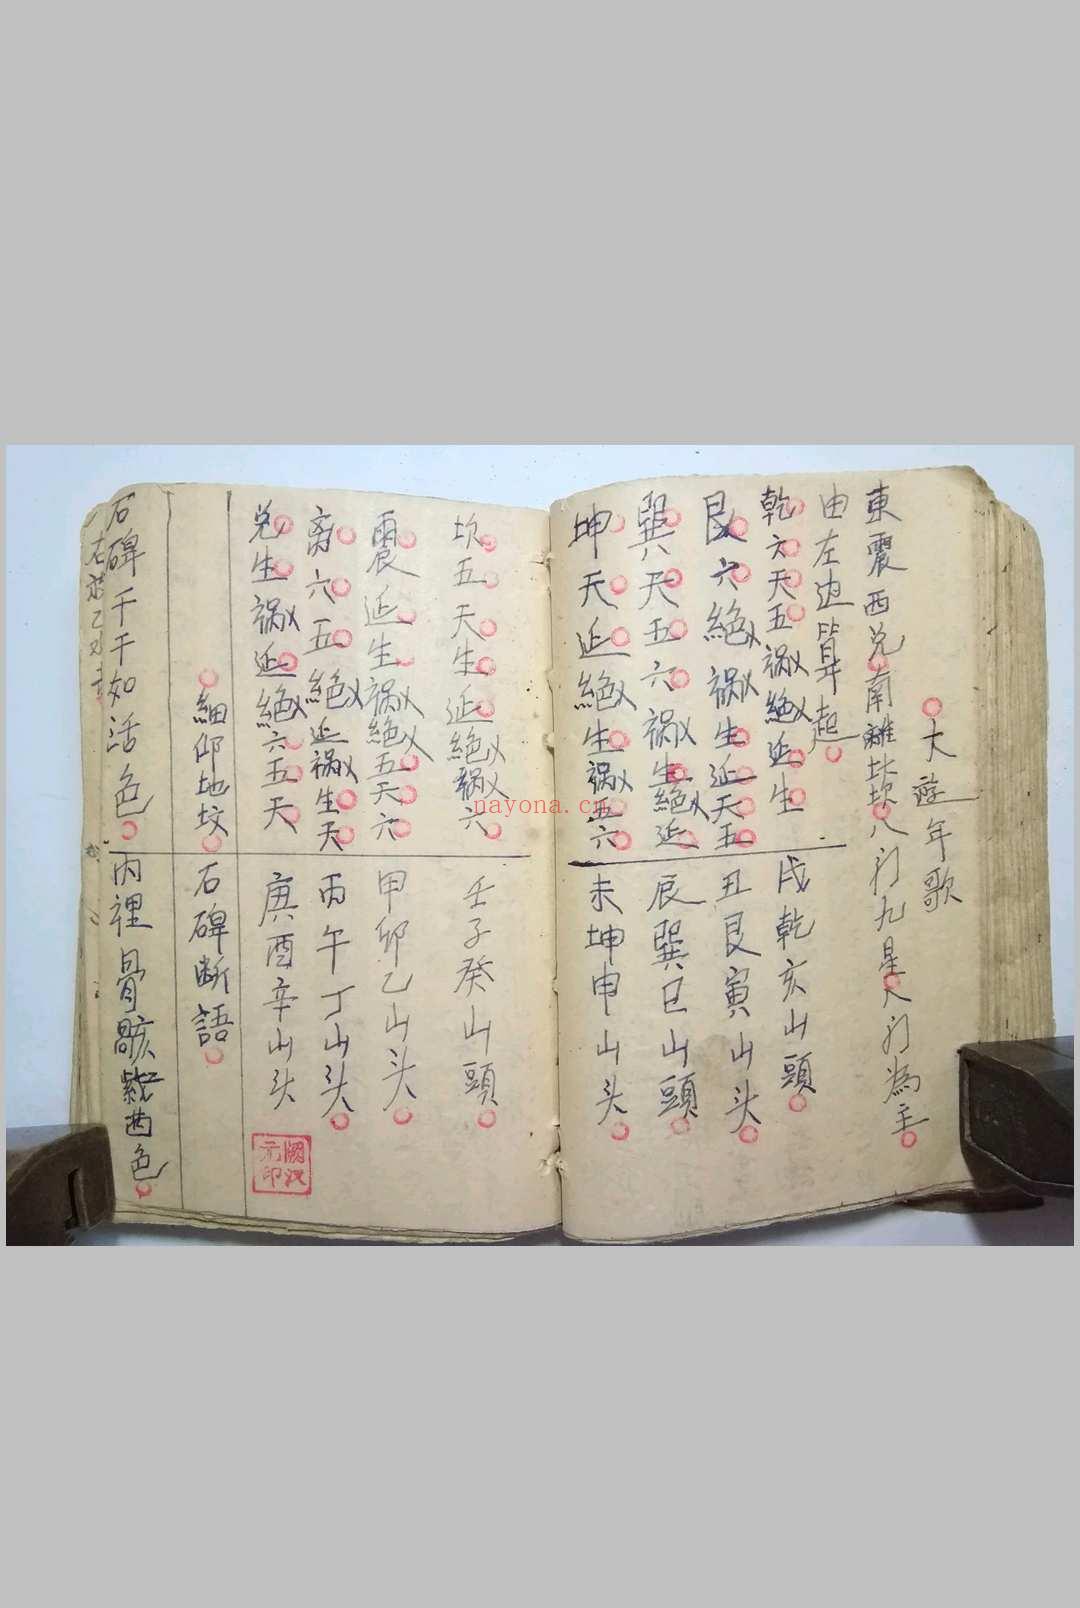 大遊年歌
東震西兌南離北坎八门九星八门為主
由左边算起
乾六天五禍絕延生
戌乾亥山頭
艮六絕禍生延天五
丑艮寅山头
巽天五六禍生絕延
辰巽巳山頭
坤天延絕生禍五六
未坤申山头
坎五天生延絕禍六
壬子癸山頭
震延生禍絕五天六
甲卯乙山头
离六五絕延禍生天
丙午丁山头
兌生禍延絕六五天
庚酉辛山头
細仰地坟
石碑断語
石碑干干如活色
内裡骨骸
色
nayona.cn